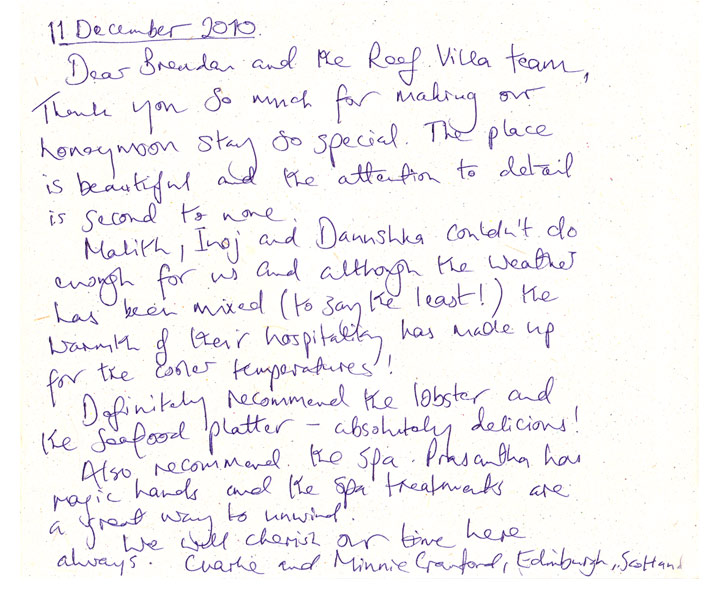 11 December 2010.
Dear Brendan and the Reef Villa team,
Thank you so much for making our
honeymoon stay so special. The place
is beautiful and the attention to detail
is second to none.
Malith, Inoj and Dannshka couldn't do
enough for us and although the weather
has been mixed (to say the least!) the
warmth of their hospitality has made up
for the cooler temperatures!
Definitely recommend the lobster and
the seafood platter - absolutely delicious!
Also recommend the spa. Prasantha has
magic hands and the spa treatments are
a great way to unwind.
We will cherish our time here
always. Charlie and Minnie Cranford, Edinburgh, Scotland